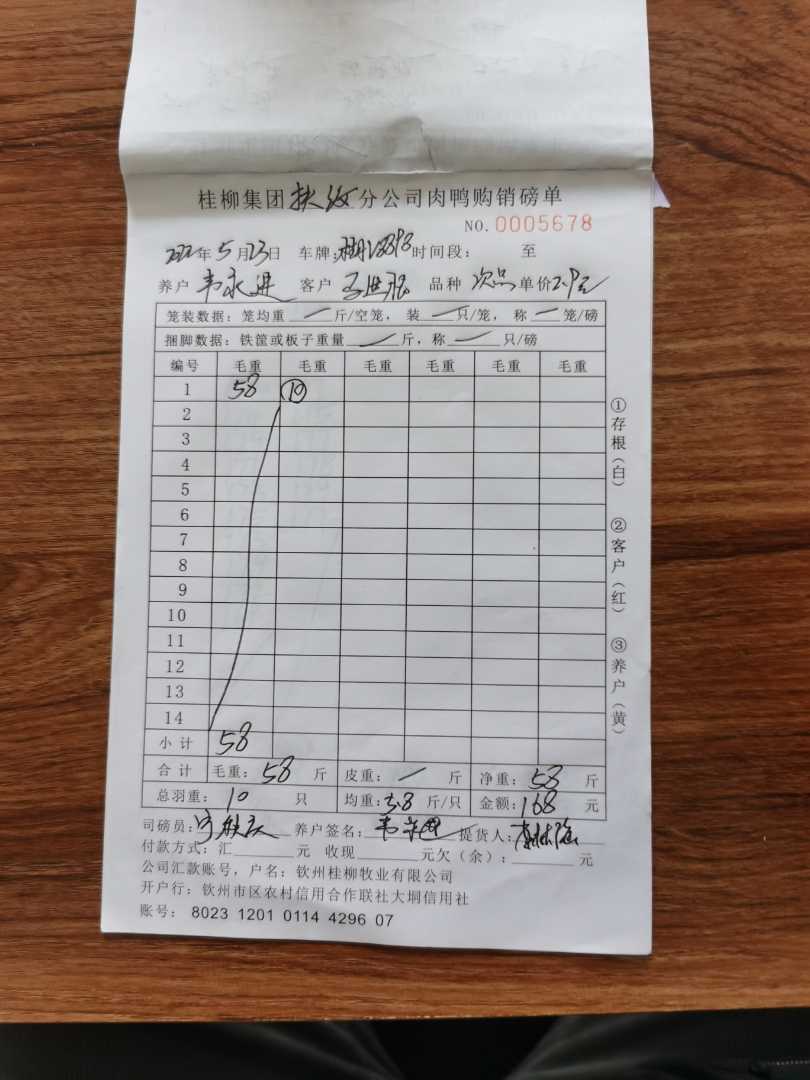 桂柳集团扶绥分公司肉鸭购销磅单
NO.0005678
2022年5月23日 车牌: 时间段: 至
养户 韦永进 客户 品种 次品 单价2.9元
笼装数据: 笼均重 一 斤/空笼, 装 一 只/笼, 称 一 笼/磅
捆脚数据: 铁筐或板子重量 一 斤, 称 一 只/磅
编号 毛重 毛重 毛重 毛重 毛重 毛重
1 58 ⑩
2
3
4
5
6
7
8
9
10
11
12
13
14
小计 58
合计 毛重: 58 斤 皮重: 一 斤 净重: 58 斤
总羽重: 10 只 均重: 5.8 斤/只 金额: 168 元
司磅员: 养户签名: 提货人:
付款方式: 汇 元 收现 元欠(余): 元
公司汇款账号, 户名: 钦州桂柳牧业有限公司
开户行: 钦州市区农村信用合作联社大垌信用社
账号: 8023 1201 0114 4296 07
①存根(白)
②客户(红)
③养户(黄)